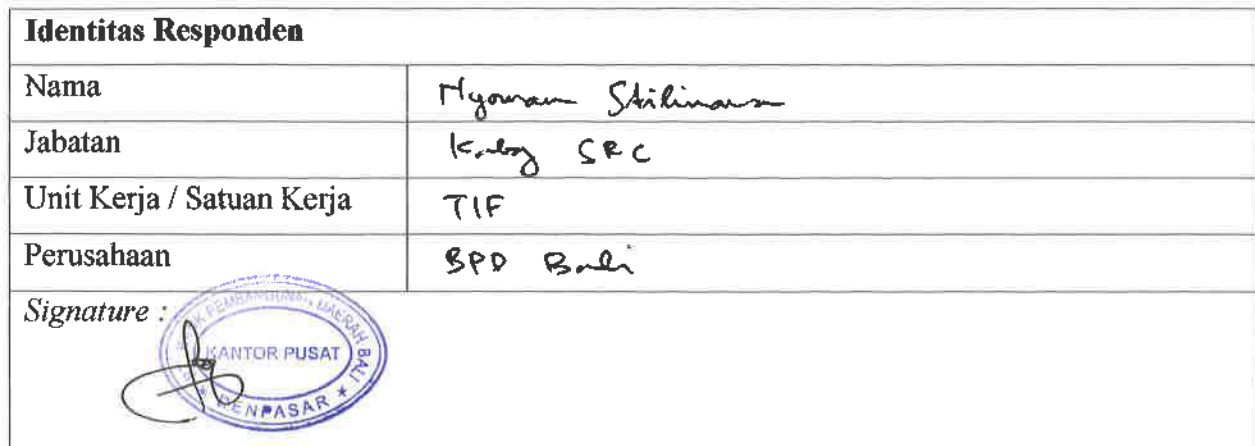 Identitas Responden
Nama Nyoman
Jabatan Kabag SRC
Unit Kerja / Satuan Kerja TIF
Perusahaan BPD Bali
Signature :
PEMBANGUNAN DAERAH BALI
KANTOR PUSAT
DENPASAR